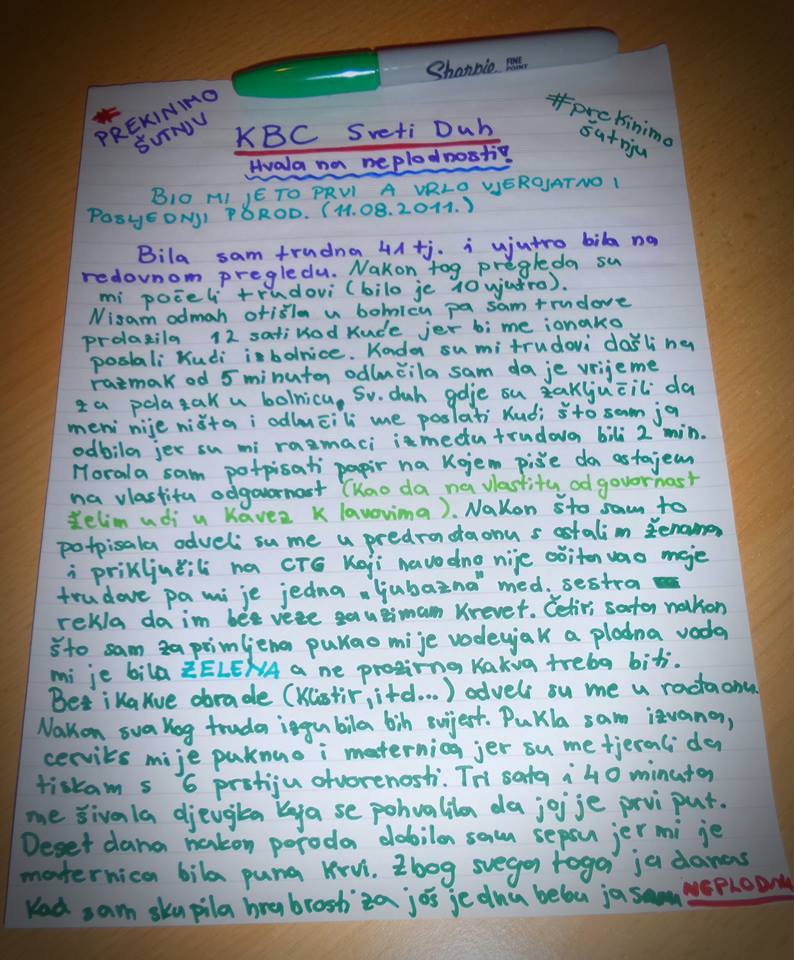 Sharpie FINE POINT
# PREKINIMO ŠUTNJU
#prekinimo šutnju
KBC Sveti Duh
Hvala na neplodnosti!
BIO MI JE TO PRVI A VRLO VJEROJATNO I
POSLJEDNJI POROD. (11.08.2011.)
Bila sam trudna 41 tj. i ujutro bila na
redovnom pregledu. Nakon tog pregleda su
mi počeli trudovi (bilo je 10 ujutro).
Nisam odmah otišla u bolnicu pa sam trudove
prolazila 12 sati kod kuće jer bi me ionako
poslali kući iz bolnice. Kada su mi trudovi došli na
razmak od 5 minuta odlučila sam da je vrijeme
za polazak u bolnicu, Sv. duh gdje su zaključili da
meni nije ništa i odlučili me poslati kući što sam ja
odbila jer su mi razmaci između trudova bili 2 min.
Morala sam potpisati papir na kojem piše da ostajem
na vlastitu odgovornost (kao da na vlastitu odgovornost
želim ući u kavez k lavovima). Nakon što sam to
potpisala odveli su me u predrađaonu s ostalim ženama
i priključili na CTG koji navodno nije očitavao moje
trudove pa mi je jedna „ljubazna" med. sestra
rekla da im bez veze zauzimam krevet. Četiri sata nakon
što sam zaprimljena pukao mi je vodenjak a plodna voda
mi je bila ZELENA a ne prozirna kakva treba biti.
Bez ikakve obrade (klistir, itd...) odveli su me u rađaonu.
Nakon svakog truda izgubila bih svijest. Pukla sam izvana,
cerviks mi je puknuo i maternica jer su me tjerali da
tiskam s 6 prstiju otvorenosti. Tri sata i 40 minuta
me šivala djevojka koja se pohvalila da joj je prvi put.
Deset dana nakon poroda dobila sam sepsu jer mi je
maternica bila puna krvi. Zbog svega toga ja danas
kad sam skupila hrabrosti za još jednu bebu ja sam NEPLODNA